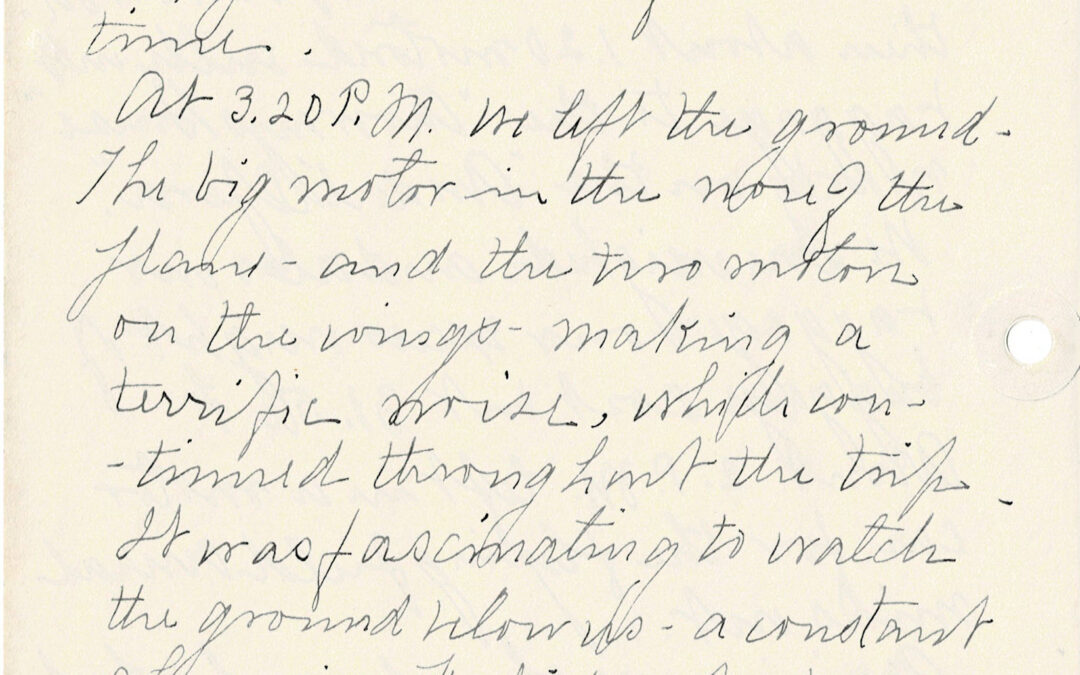 time.
At 3.20 P.M. we left the ground.
The big motor in the nose of the
plane - and the two motors
on the wings - making a
terrific noise, which con-
-tinued throughout the trip.
It was fascinating to watch
the ground below us - a constant